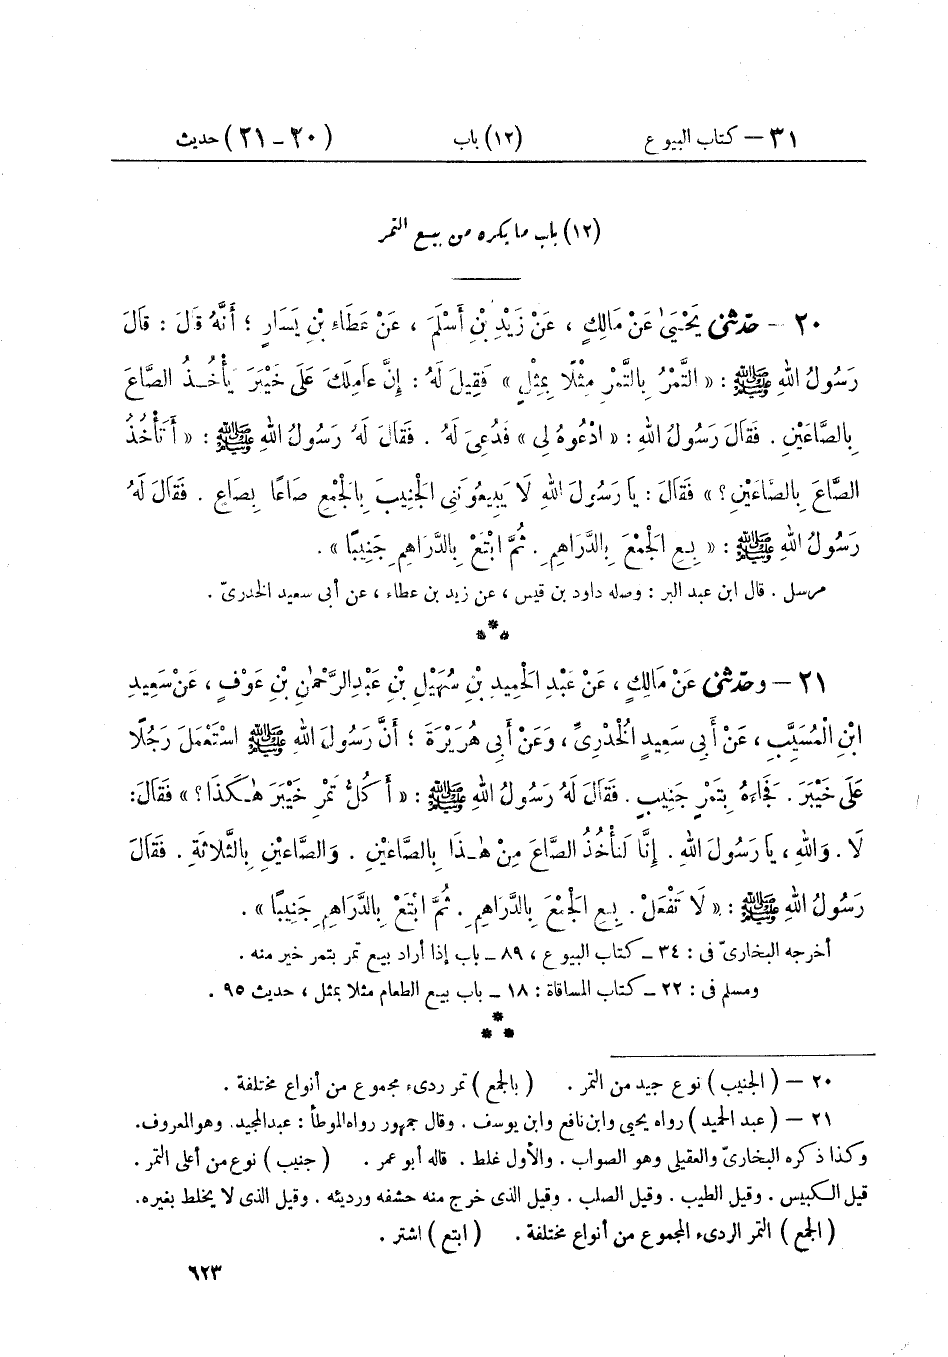 ٣١ – كتاب البيوع (١٢) باب (٢٠ - ٢١) حديث
(١٢) باب ما يكره من بيع التمر
٢٠ – حَدَّثَنِى يَحْيَىٰ عَنْ مَالِكٍ ، عَنْ زَيْدِ بْنِ أَسْلَمَ ، عَنْ عَطَاءِ بْنِ يَسَارٍ ؛ أَنَّهُ قَالَ : قَالَ
رَسُولُ اللهِ ﷺ : « التَّمْرُ بِالتَّمْرِ مِثْلًا بِمِثْلٍ » فَقِيلَ لَهُ : إِنَّ عَامِلَكَ عَلَى خَيْبَرَ يَأْخُذُ الصَّاعَ
بِالصَّاعَيْنِ . فَقَالَ رَسُولُ اللهِ : « ادْعُوهُ لِى » فَدُعِىَ لَهُ . فَقَالَ لَهُ رَسُولُ اللهِ ﷺ : « أَتَأْخُذُ
الصَّاعَ بِالصَّاعَيْنِ ؟ » فَقَالَ : يَا رَسُولَ اللهِ لَا يَبِيعُونَنِى الْجَنِيبَ بِالْجَمْعِ صَاعًا بِصَاعٍ . فَقَالَ لَهُ
رَسُولُ اللهِ ﷺ : « بِعِ الْجَمْعَ بِالدَّرَاهِمِ . ثُمَّ ابْتَعْ بِالدَّرَاهِمِ جَنِيبًا » .
مرسل . قال ابن عبد البر : وصله داود بن قيس ، عن زيد بن عطاء ، عن أبى سعيد الخدرىّ .
***
٢١ – وحَدَّثَنِى عَنْ مَالِكٍ ، عَنْ عَبْدِ الْحَمِيدِ بْنِ سُهَيْلِ بْنِ عَبْدِ الرَّحْمٰنِ بْنِ عَوْفٍ ، عَنْ سَعِيدِ
ابْنِ الْمُسَيَّبِ ، عَنْ أَبِى سَعِيدٍ الْخُدْرِىِّ ، وَعَنْ أَبِى هُرَيْرَةَ ؛ أَنَّ رَسُولَ اللهِ ﷺ اسْتَعْمَلَ رَجُلًا
عَلَى خَيْبَرَ . فَجَاءَهُ بِتَمْرٍ جَنِيبٍ . فَقَالَ لَهُ رَسُولُ اللهِ ﷺ : « أَكُلُّ تَمْرِ خَيْبَرَ هٰكَذَا ؟ » فَقَالَ :
لَا . وَاللهِ ، يَا رَسُولَ اللهِ . إِنَّا لَنَأْخُذُ الصَّاعَ مِنْ هٰذَا بِالصَّاعَيْنِ . وَالصَّاعَيْنِ بِالثَّلَاثَةِ . فَقَالَ
رَسُولُ اللهِ ﷺ : « لَا تَفْعَلْ . بِعِ الْجَمْعَ بِالدَّرَاهِمِ . ثُمَّ ابْتَعْ بِالدَّرَاهِمِ جَنِيبًا » .
أخرجه البخارىّ فى : ٣٤ – كتاب البيوع ، ٨٩ – باب إذا أراد بيع تمر بتمر خير منه .
ومسلم فى : ٢٢ – كتاب المساقاة : ١٨ – باب بيع الطعام مثلا بمثل ، حديث ٩٥ .
***
٢٠ – (الجنيب) نوع جيد من التمر . (بالجمع) تمر ردىء مجموع من أنواع مختلفة .
٢١ – (عبد الحميد) رواه يحيى وابن نافع وابن يوسف . وقال جمهور رواه الموطأ : عبد المجيد . وهو المعروف .
وكذا ذكره البخارىّ والعقيلى وهو الصواب . والأول غلط . قاله أبو عمر . (جنيب) نوع من أعلى التمر .
قيل الكبيس . وقيل الطيب . وقيل الصلب . وقيل الذى خرج منه حشفه ورديئه . وقيل الذى لا يخلط بغيره .
(الجمع) التمر الردىء المجموع من أنواع مختلفة . (ابتع) اشتر .
٦٢٣